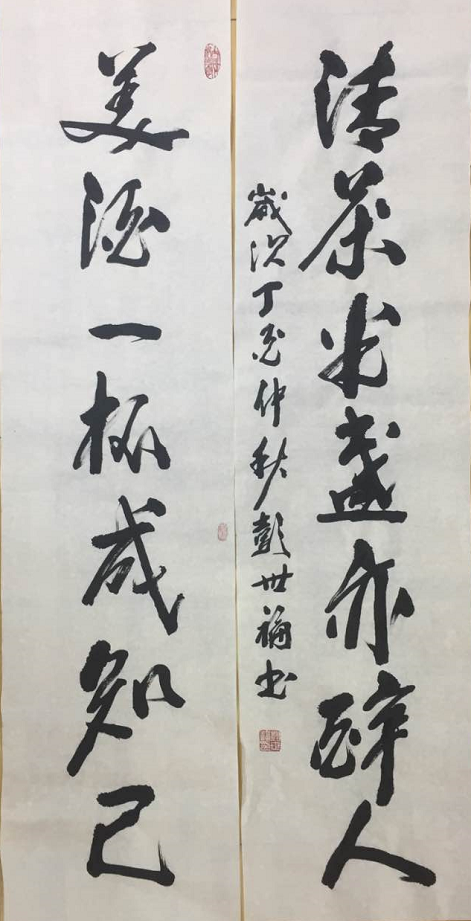 清茶半盏亦醉人
歲次丁酉仲秋彭世福书
美酒一杯成知己